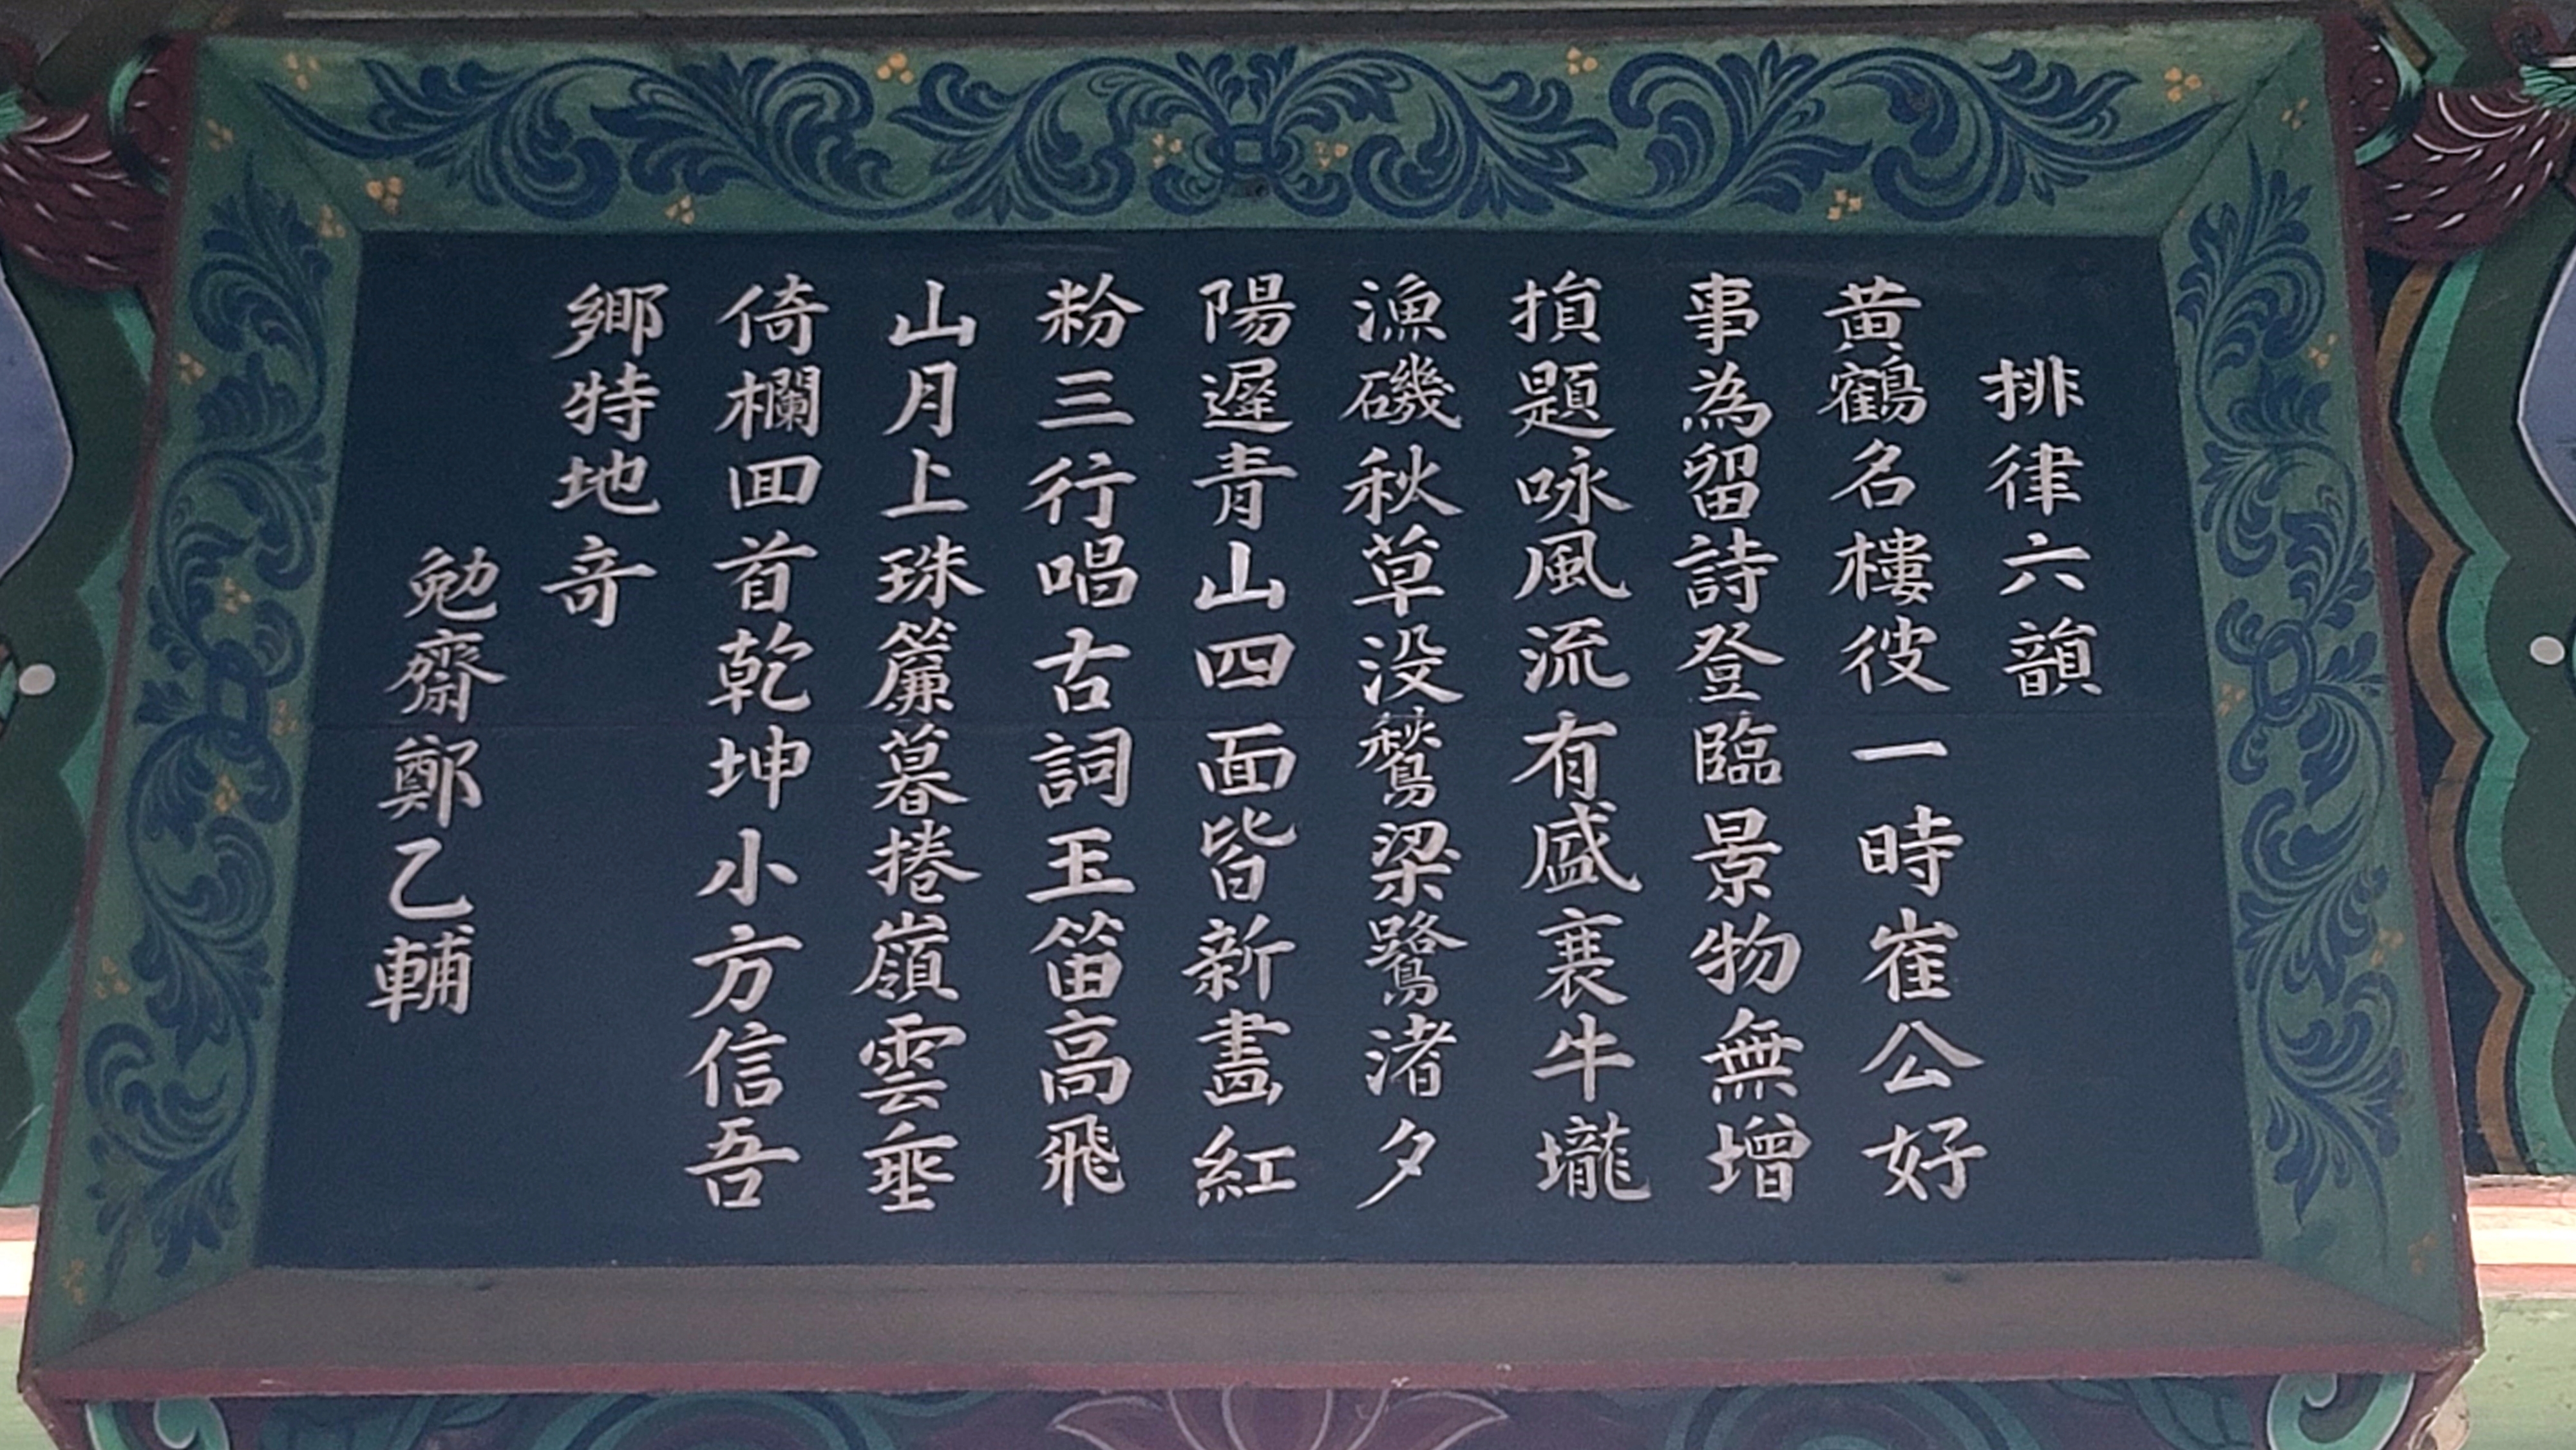 排律六韻
黄鶴名樓彼一時崔公好
事為留詩登臨景物無增
損題咏風流有盛衰牛壠
漁磯秋草没鶖梁鷺渚夕
陽遲青山四面皆新畵紅
粉三行唱古詞玉笛高飛
山月上珠簾暮捲嶺雲垂
倚欄回首乾坤小方信吾
鄉特地奇
勉齋鄭乙輔